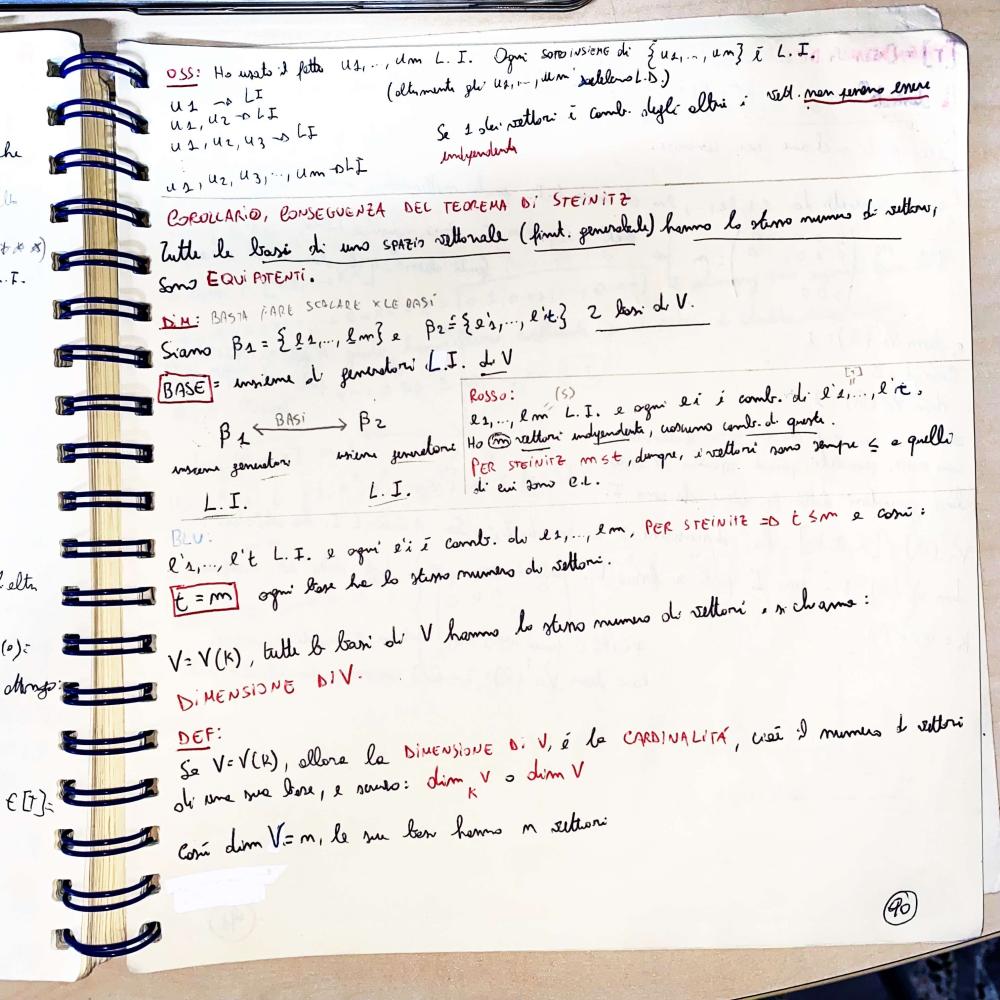 OSS: Ho usato il fatto u1,..., um L.I. Ogni SOTTOINSIEME di {u1,..., um} è L.I.
(altrimenti gli u1,..., um sarebbero L.D.)
u1 → LI
u1, u2 → LI
u1, u2, u3 → LI
u1, u2, u3, ..., um → LI
Se 1 dei vettori è comb. degli altri i vett. non possono essere
indipendenti
COROLLARIO, CONSEGUENZA DEL TEOREMA DI STEINITZ
Tutte le basi di uno SPAZIO vettoriale (finit. generabile) hanno lo stesso numero di vettori,
sono EQUIPOTENTI.
DIM: BASTA FARE SCALARE X LE BASI
Siano β1 = {e1,..., em} e β2 = {e'1,..., e't} 2 basi di V.
BASE = insieme di generatori L.I. di V
β1 ← BASI → β2
insieme generatori insieme generatore
L.I. L.I.
ROSSO: (S) [T]
e1,..., em L.I. e ogni ei è comb. di e'1,..., e't.
Ho m vettori indipendenti, ciascuno comb. di questi.
PER STEINITZ m ≤ t, dunque, i vettori sono sempre ≤ a quelli
di cui sono C.L.
BLU:
e'1,..., e't L.I. e ogni e'i è comb. di e1,..., em, PER STEINITZ => t ≤ m e così:
t = m ogni base ha lo stesso numero di vettori.
V = V(K), tutte le basi di V hanno lo stesso numero di vettori e si chiama:
DIMENSIONE DI V.
DEF:
Se V = V(K), allora la DIMENSIONE DI V, è la CARDINALITÀ, cioè il numero di vettori
di una sua base, e scrivo: dim_K V o dim V
Così dim V = n, le sue basi hanno n vettori
90
he
I.
altri
(0):
ottengo:
∈ [T]: